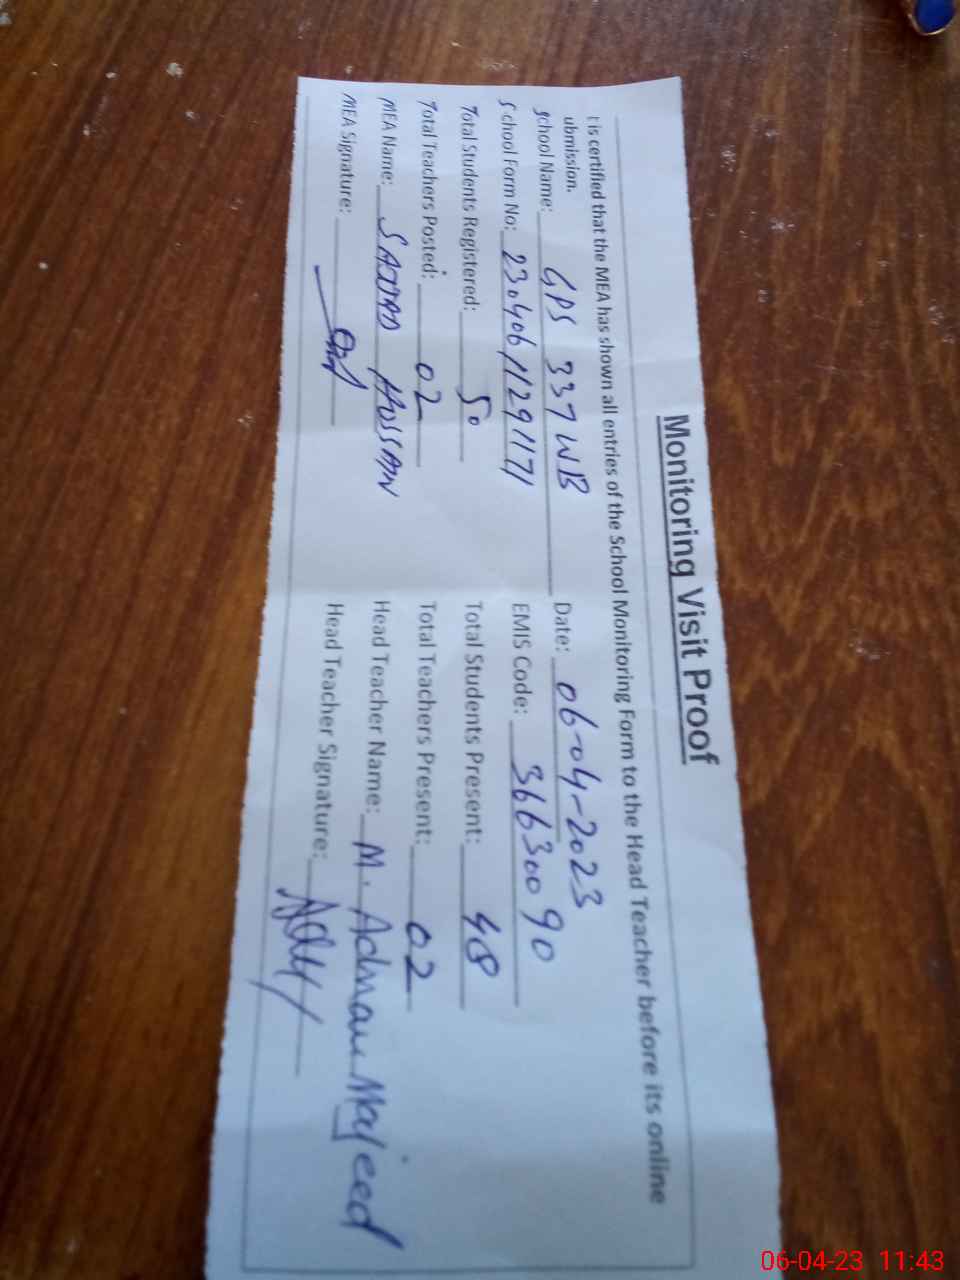 Monitoring Visit Proof
t is certified that the MEA has shown all entries of the School Monitoring Form to the Head Teacher before its online
ubmission.
School Name: GPS 337 WB Date: 06-04-2023
School Form No: 230406 1129 1171 EMIS Code: 36630090
Total Students Registered: 50 Total Students Present: 48
Total Teachers Posted: 02 Total Teachers Present: 02
MEA Name: SAJJAD HUSSAIN Head Teacher Name: M. Adnan Majeed
MEA Signature: Head Teacher Signature:
06-04-23 11:43